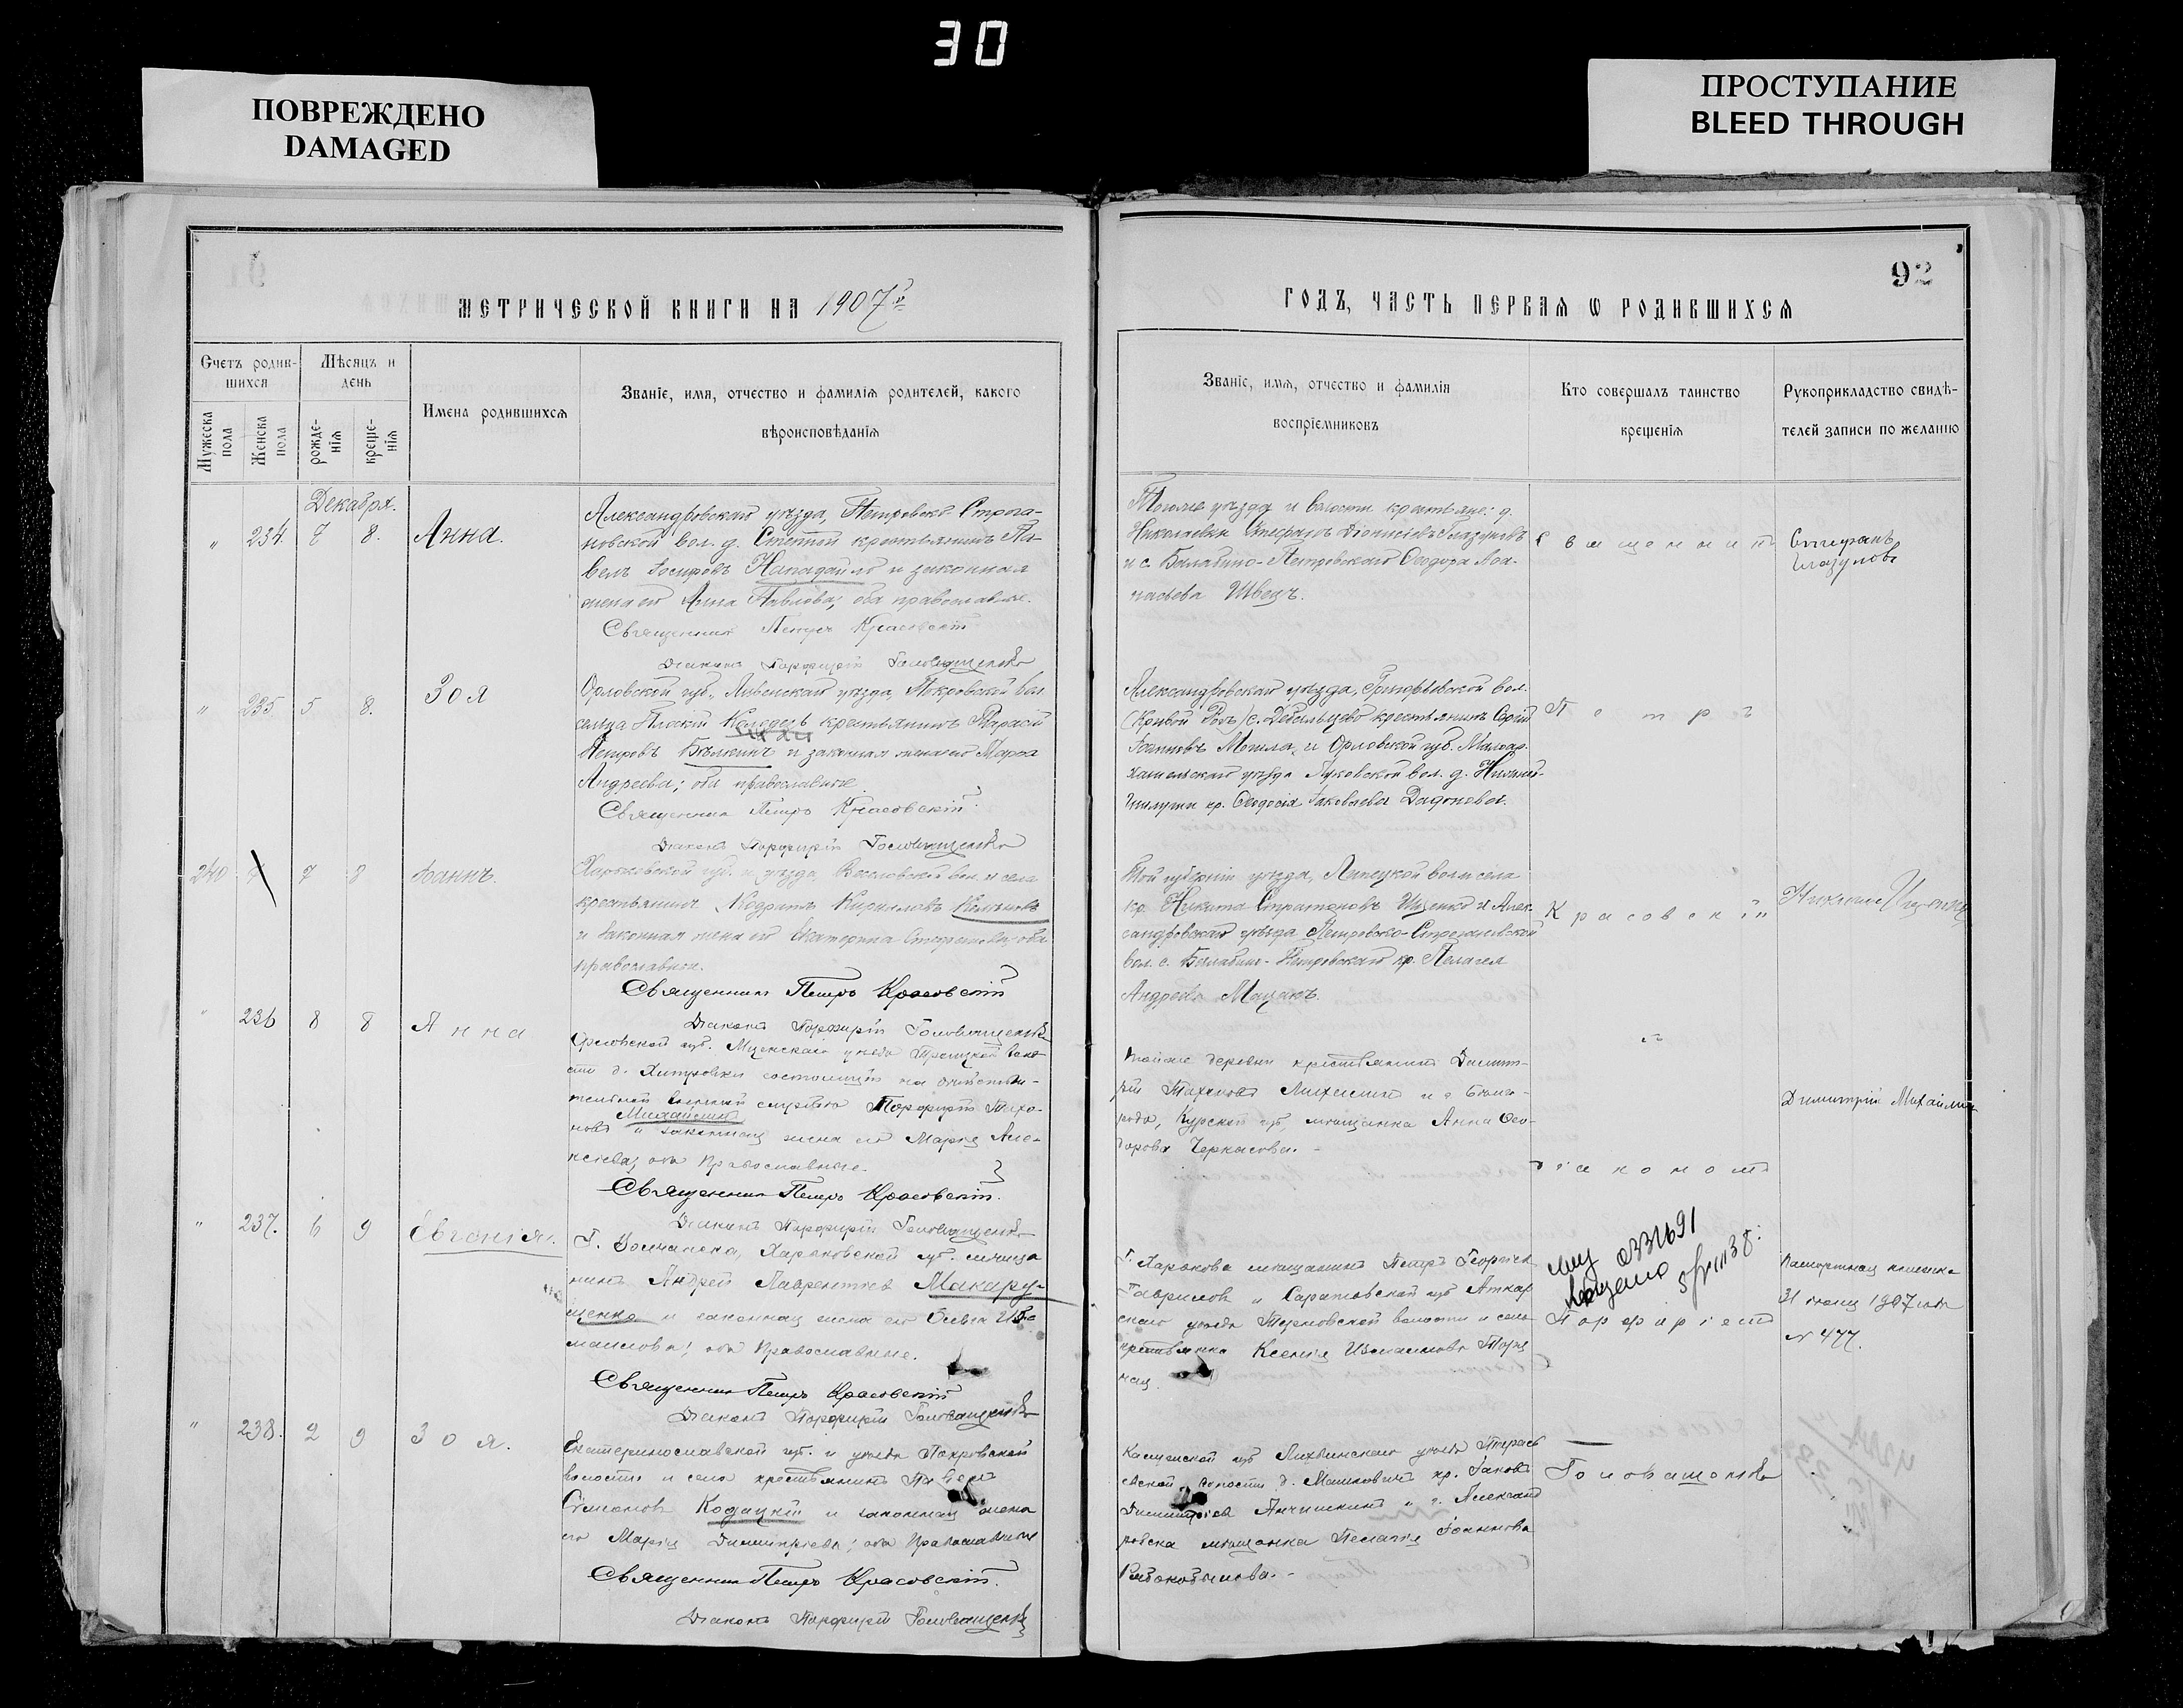 30
ПОВРЕЖДЕНО
DAMAGED
ПРОСТУПАНИЕ
BLEED THROUGH
92
МЕТРИЧЕСКОЙ КНИГИ НА 1907й
ГОДЪ, ЧАСТЬ ПЕРВАЯ Ѡ РОДИВШИХСЯ
Счетъ родив-
шихся
Мѣсяцъ и
день
Мужеска
пола
Женска
пола
рожде-
нія
креще-
нія
Имена родившихся
Званіе, имя, отчество и фамилія родителей, какого
вѣроисповѣданія
Званіе, имя, отчество и фамилія
воспріемниковъ
Кто совершалъ таинство
крещенія
Рукоприкладство свидѣ-
телей записи по желанію
Декабря.
" 234. 7 8. Анна.
Александровскаго уѣзда, Петровско-Строга-
новской вол. д. Степной крестьянинъ Па-
велъ Іосифовъ и законная
жена его Анна Павлова; оба православные.
Священникъ Петръ Красовскій
Діаконъ Порфирій Головащенко
Того же уѣзда и волости крестьяне: д.
Николаевки Стефанъ Діонисіевъ Глазуновъ
и с. Балабино-Петровскаго Ѳеодора Аѳа-
насьева Швецъ.
Священникъ
Стефанъ
Глазуновъ
" 235 5 8. Зоя
Орловской губ., Ливенскаго уѣзда, Покровской вол.
сельца Плоскій Колодезь крестьянинъ Тарасій
Петровъ Бѣлкинъ и законная жена его Марѳа
Андреева; оба православные
Священникъ Петръ Красовскій
Діаконъ Порфирій Головащенко
Александровскаго уѣзда, Григорьевской вол.
(Кривой Рогъ) с. Дебальцево крестьянинъ Сергій
Іоанновъ Могила, и Орловской губ. Малоар-
хангельскаго уѣзда вол. д.
кр. Ѳеодосія Іаковлева
Петръ
240 7 8 Іоаннъ.
Харьковской губ. и уѣзда, Веселовской вол. и села
крестьянинъ Кодратъ Кирилловъ
и законная жена его Екатерина оба
православные.
Священникъ Петръ Красовскій
Діаконъ Порфирій Головащенко
Той губерніи уѣзда, Липецкой вол. и села
кр. Никита Ищенко и Алек-
сандровскаго уѣзда Петровско-Строгановской
вол. с. Балабино-Петровскаго кр. Пелагея
Андреева Мацакъ.
Красовскій
" 236 8 8 Анна
Орловской губ. Мценскаго уѣзда Троицкой воло-
сти д. Хитровки состоящій на дѣйстви-
тельной военной службѣ Порфирій Тихо-
Михайлинъ
новъ и законная жена его Марія Але-
ксѣева; оба православные.
Священникъ Петръ Красовскій.
Діаконъ Порфирій Головащенко
Той же деревни крестьянинъ Димит-
рій Тихоновъ Михайлинъ и г. Бѣлго-
рода, Курской губ., мѣщанка Анна Ѳео-
дорова Черкасова.
съ
діакономъ
Димитрій Михайлин
" 237. 6 9 Евгенія.
Г. Волчанска, Харьковской губ. мѣща
нинъ Андрей Лаврентіевъ Макару-
щенко и законная жена его Ольга Из-
маилова; оба православные.
Священникъ Петръ Красовскій
Діаконъ Порфирій Головащенко
Г. Харькова мѣщанинъ Петръ Георгіев
Гавриловъ и Саратовской губ Аткар
скаго уѣзда волости и села
крестьянка Ксенія Измаилова
ная.
Порфиріемъ
Паспортная книжка
31 1907 года
№ 477.
" 238. 2 9 Зоя.
Екатеринославской губ. и уѣзда Покровской
волости и села крестьянинъ Павелъ
Симоновъ Кодацкій и законная жена
его Марія Димитріева; оба православные
Священникъ Петръ Красовскій.
Діаконъ Порфирій Головащенко
Калужской губ Лихвинскаго уѣзда
волости д. кр. Іаковъ
Димитріевъ Анчишкинъ и г. Александ
ровска мѣщанка Пелагія Іоаннова
Головащенко